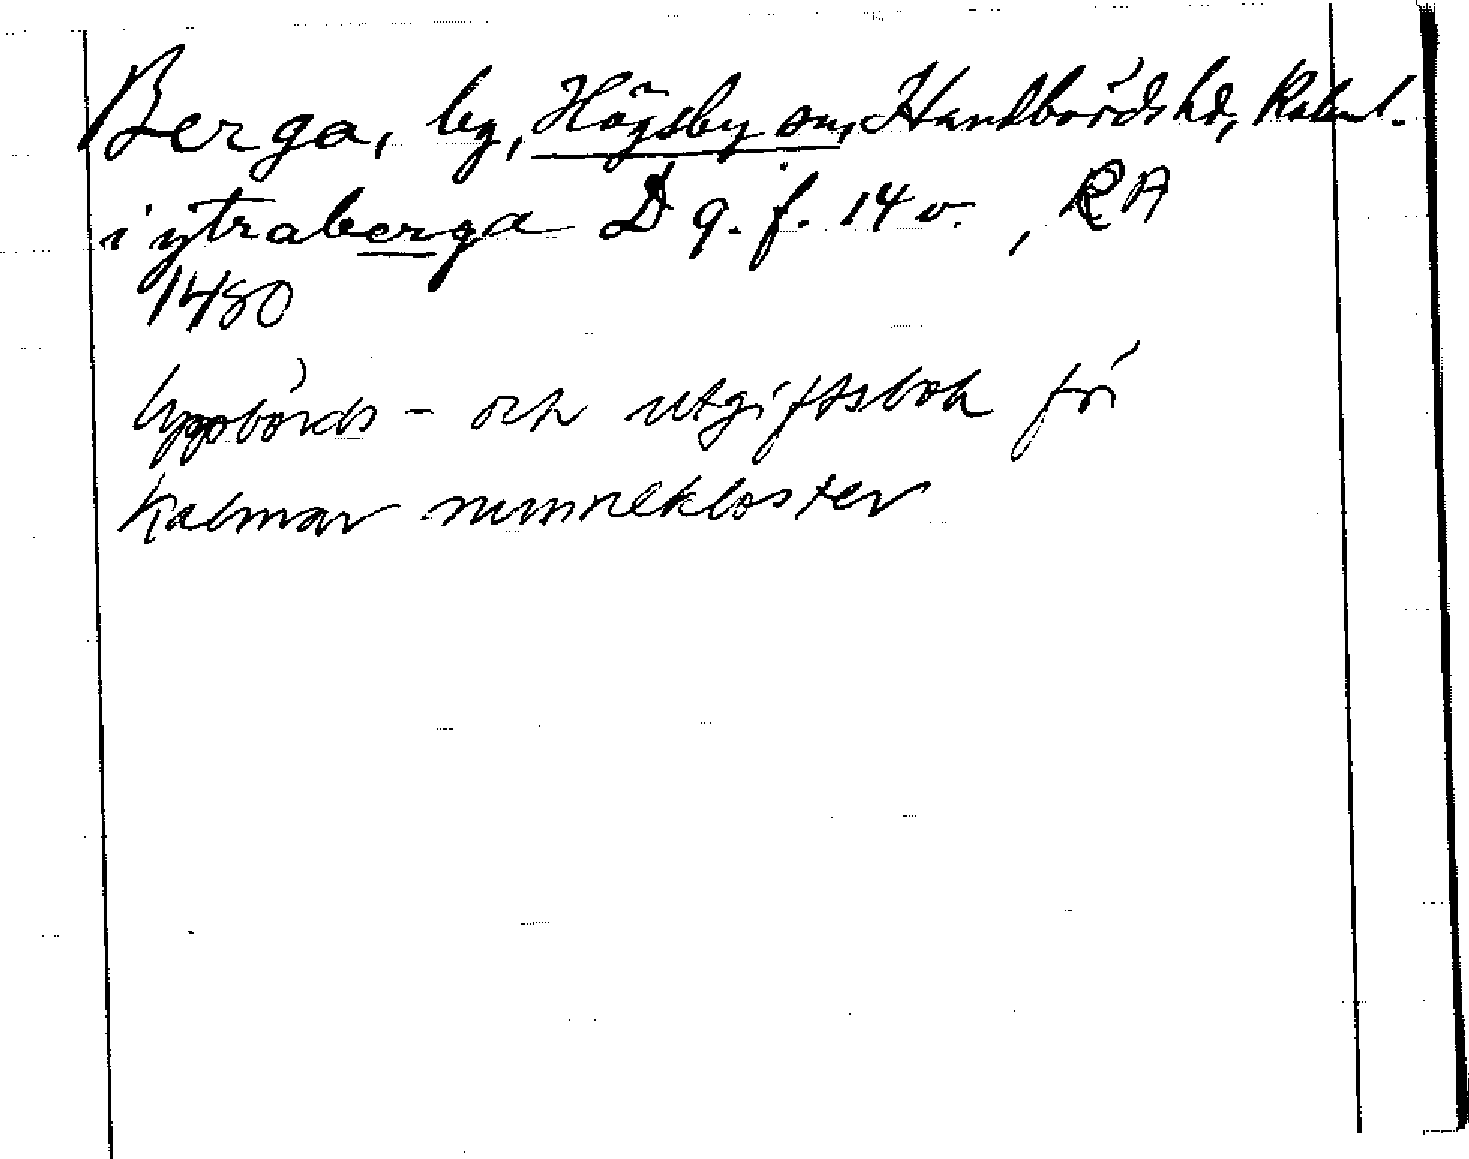 Berga, by, Högsby sn, Handbörds hd, Kalm l.
i ytraberga D 9. f. 14 v. , RA
1480
Uppbörds- och utgiftsbok för
Kalmar nunnekloster